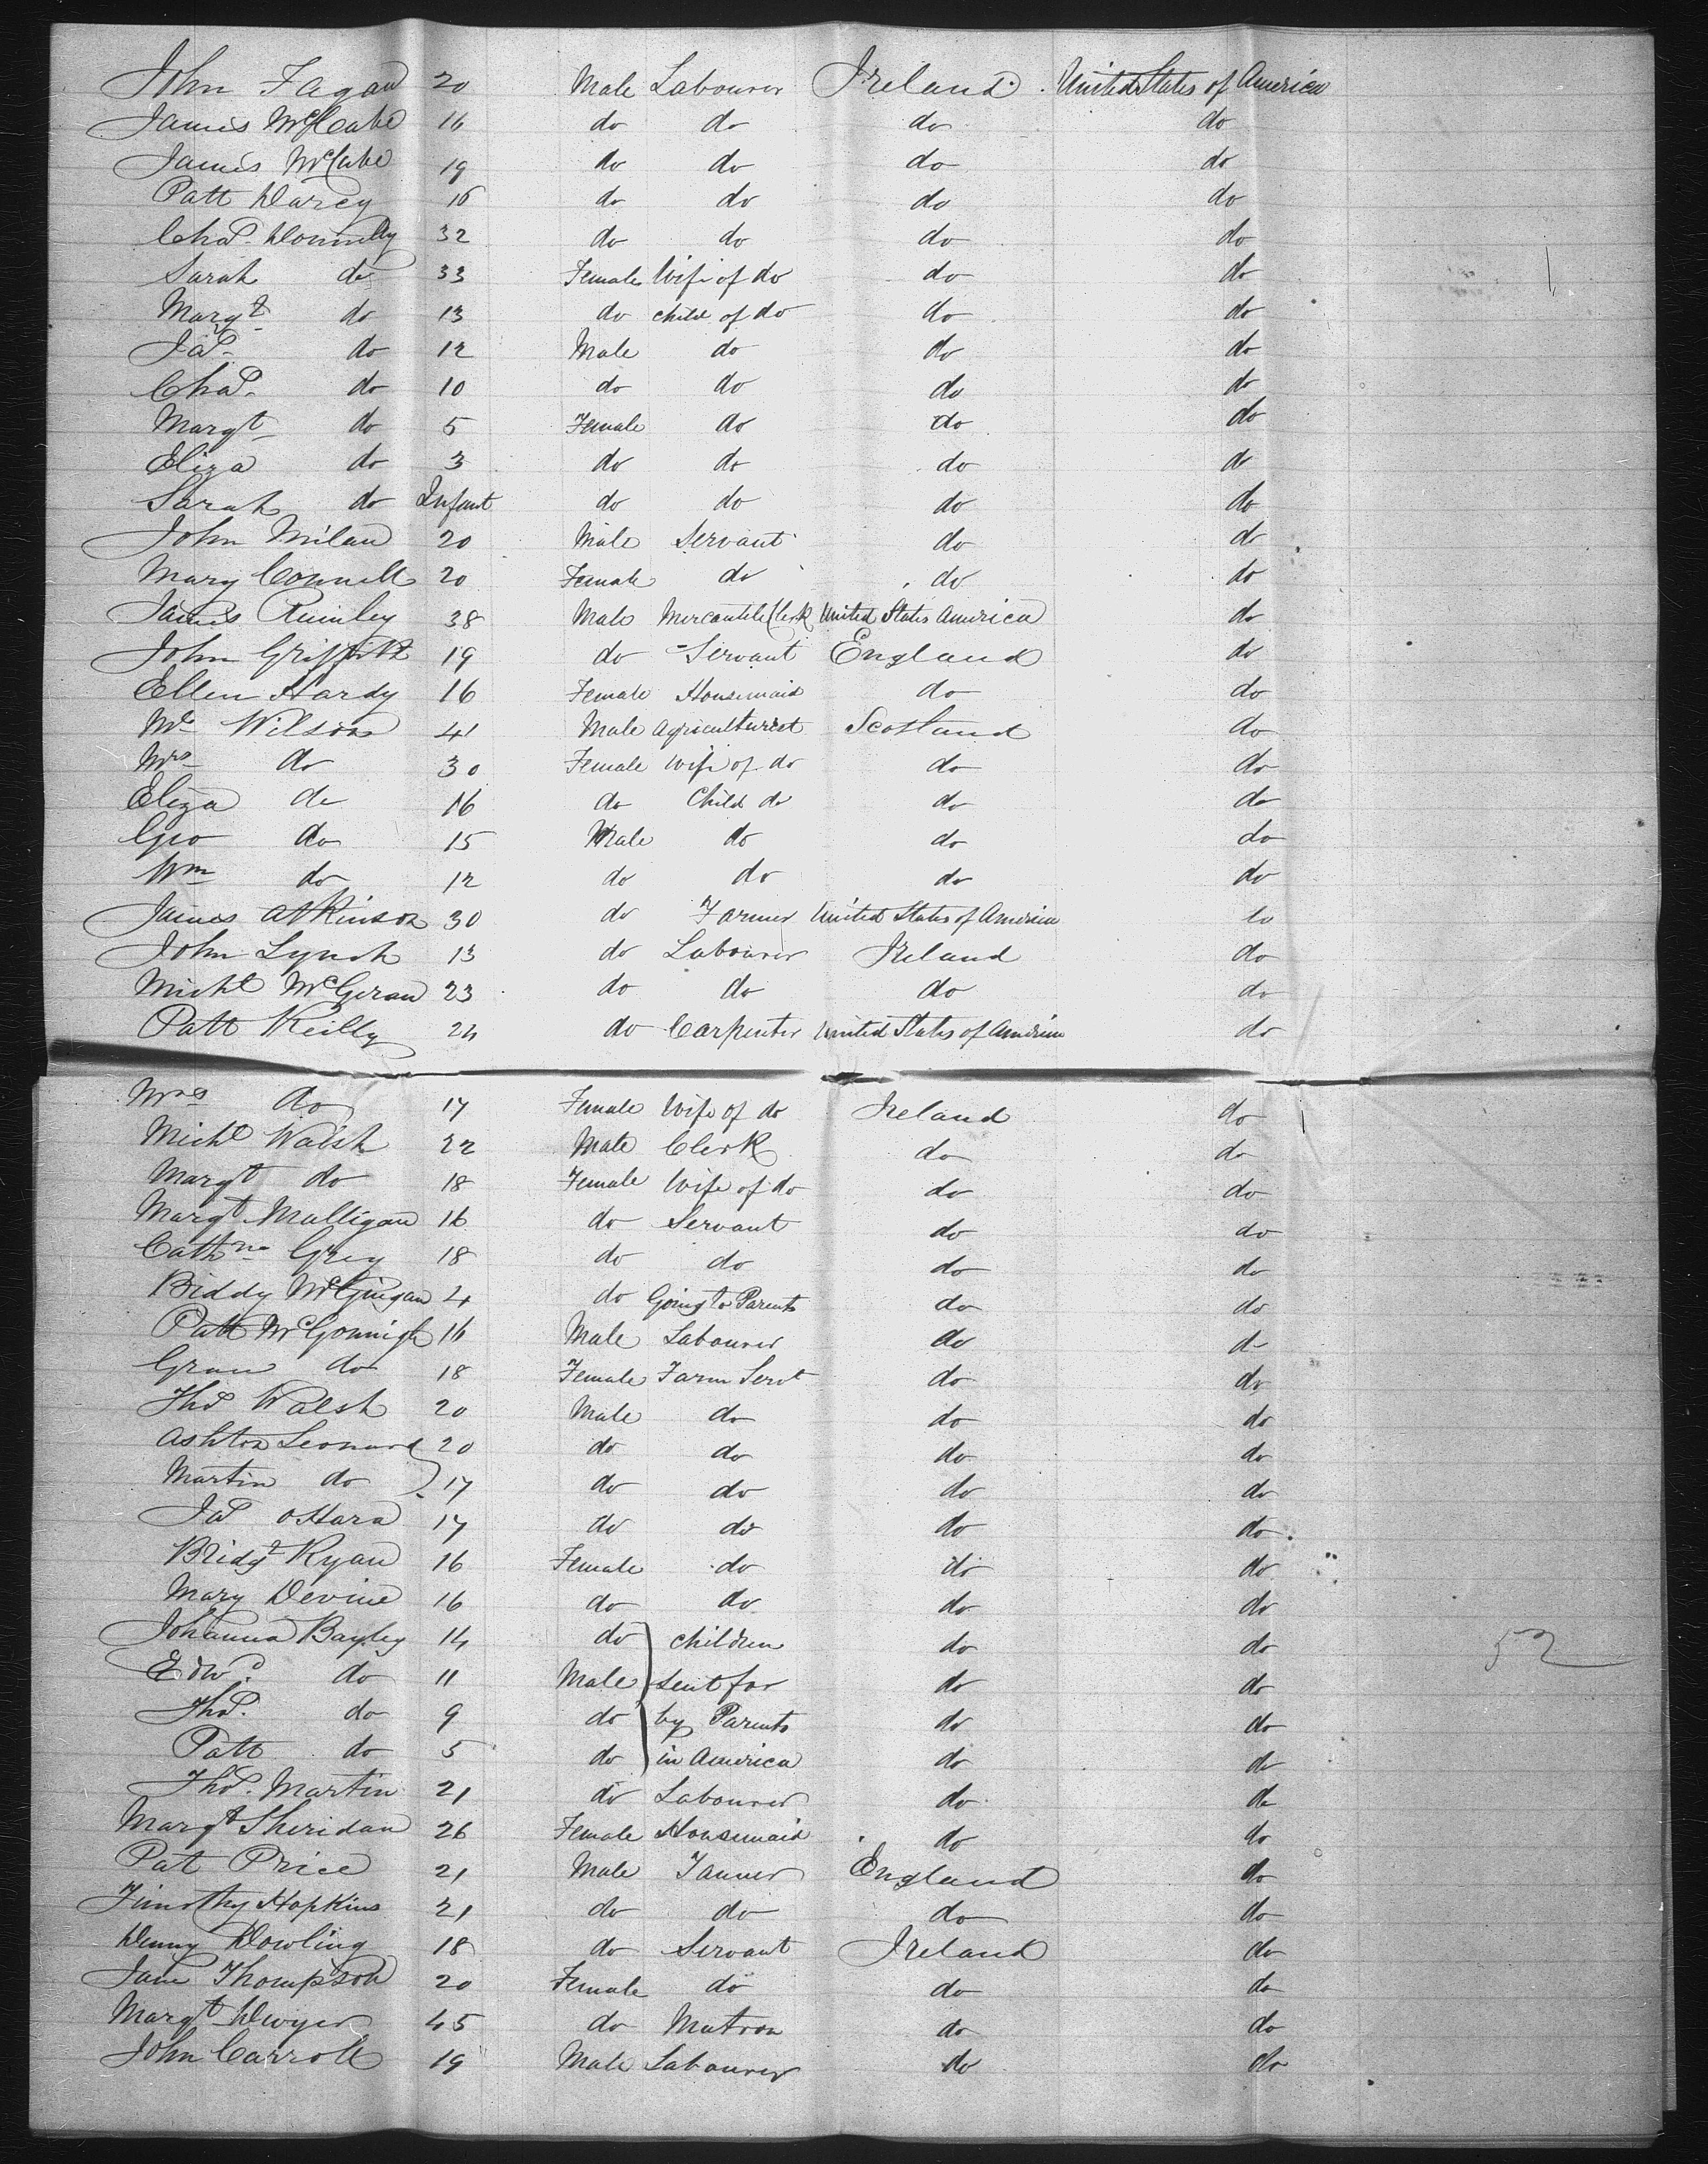 John Fagan 20 Male Labourer Ireland United States of America
James McCabe 16 do do do do
James McCabe 19 do do do do
Patt Darcy 16 do do do do
Chas. Donnelly 32 do do do do
Sarah do 33 Female Wife of do do do
Margt do 13 do Child of do do do
Jas. do 12 Male do do do
Chas. do 10 do do do do
Margt do 5 Female do do do
Eliza do 3 do do do do
Sarah do Infant do do do do
John Milan 20 Male Servant do do
Mary Connell 20 Female do do do
James 38 Male Mercantile Clerk United States America do
John Griffith 19 do Servant England do
Ellen Hardy 16 Female Housemaid do do
Mr Wilson 41 Male Agriculturist Scotland do
Mrs do 30 Female Wife of do do do
Eliza do 16 do Child do do do
Geo do 15 Male do do do
Wm do 12 do do do do
James Atkinson 30 do Farmer United States of America do
John Lynch 13 do Labourer Ireland do
Michl McGeran 23 do do do do
Patt Reilly 24 do Carpenter United States of America do
Mrs do 17 Female Wife of do Ireland do
Michl Walsh 22 Male Clerk do do
Margt do 18 Female Wife of do do do
Margt Mulligan 16 do Servant do do
Cathne Grey 18 do do do do
Biddy McGuigan 4 do Going to Parents do do
Patt McGonnigle 16 Male Labourer do do
do 18 Female Farm Servt do do
Thos Walsh 20 Male do do do
Ashton Leonard 20 do do do do
Martin do 17 do do do do
Jas oHara 17 do do do do
Bridgt Ryan 16 Female do do do
Mary Devine 16 do do do do
Johanna Bayley 14 do children do do
Edwd. do 11 Male sent for do do
Thos. do 9 do by Parents do do
Patt do 5 do in America do do
Thos. Martin 21 do Labourer do do
Margt Sheridan 26 Female Housemaid do do
Pat Price 21 Male Tanner England do
Timothy Hopkins 21 do do do do
Denny Dowling 18 do Servant Ireland do
Jane Thompson 20 Female do do do
Margt Dwyer 45 do Matron do do
John Carroll 19 Male Labourer do do
52